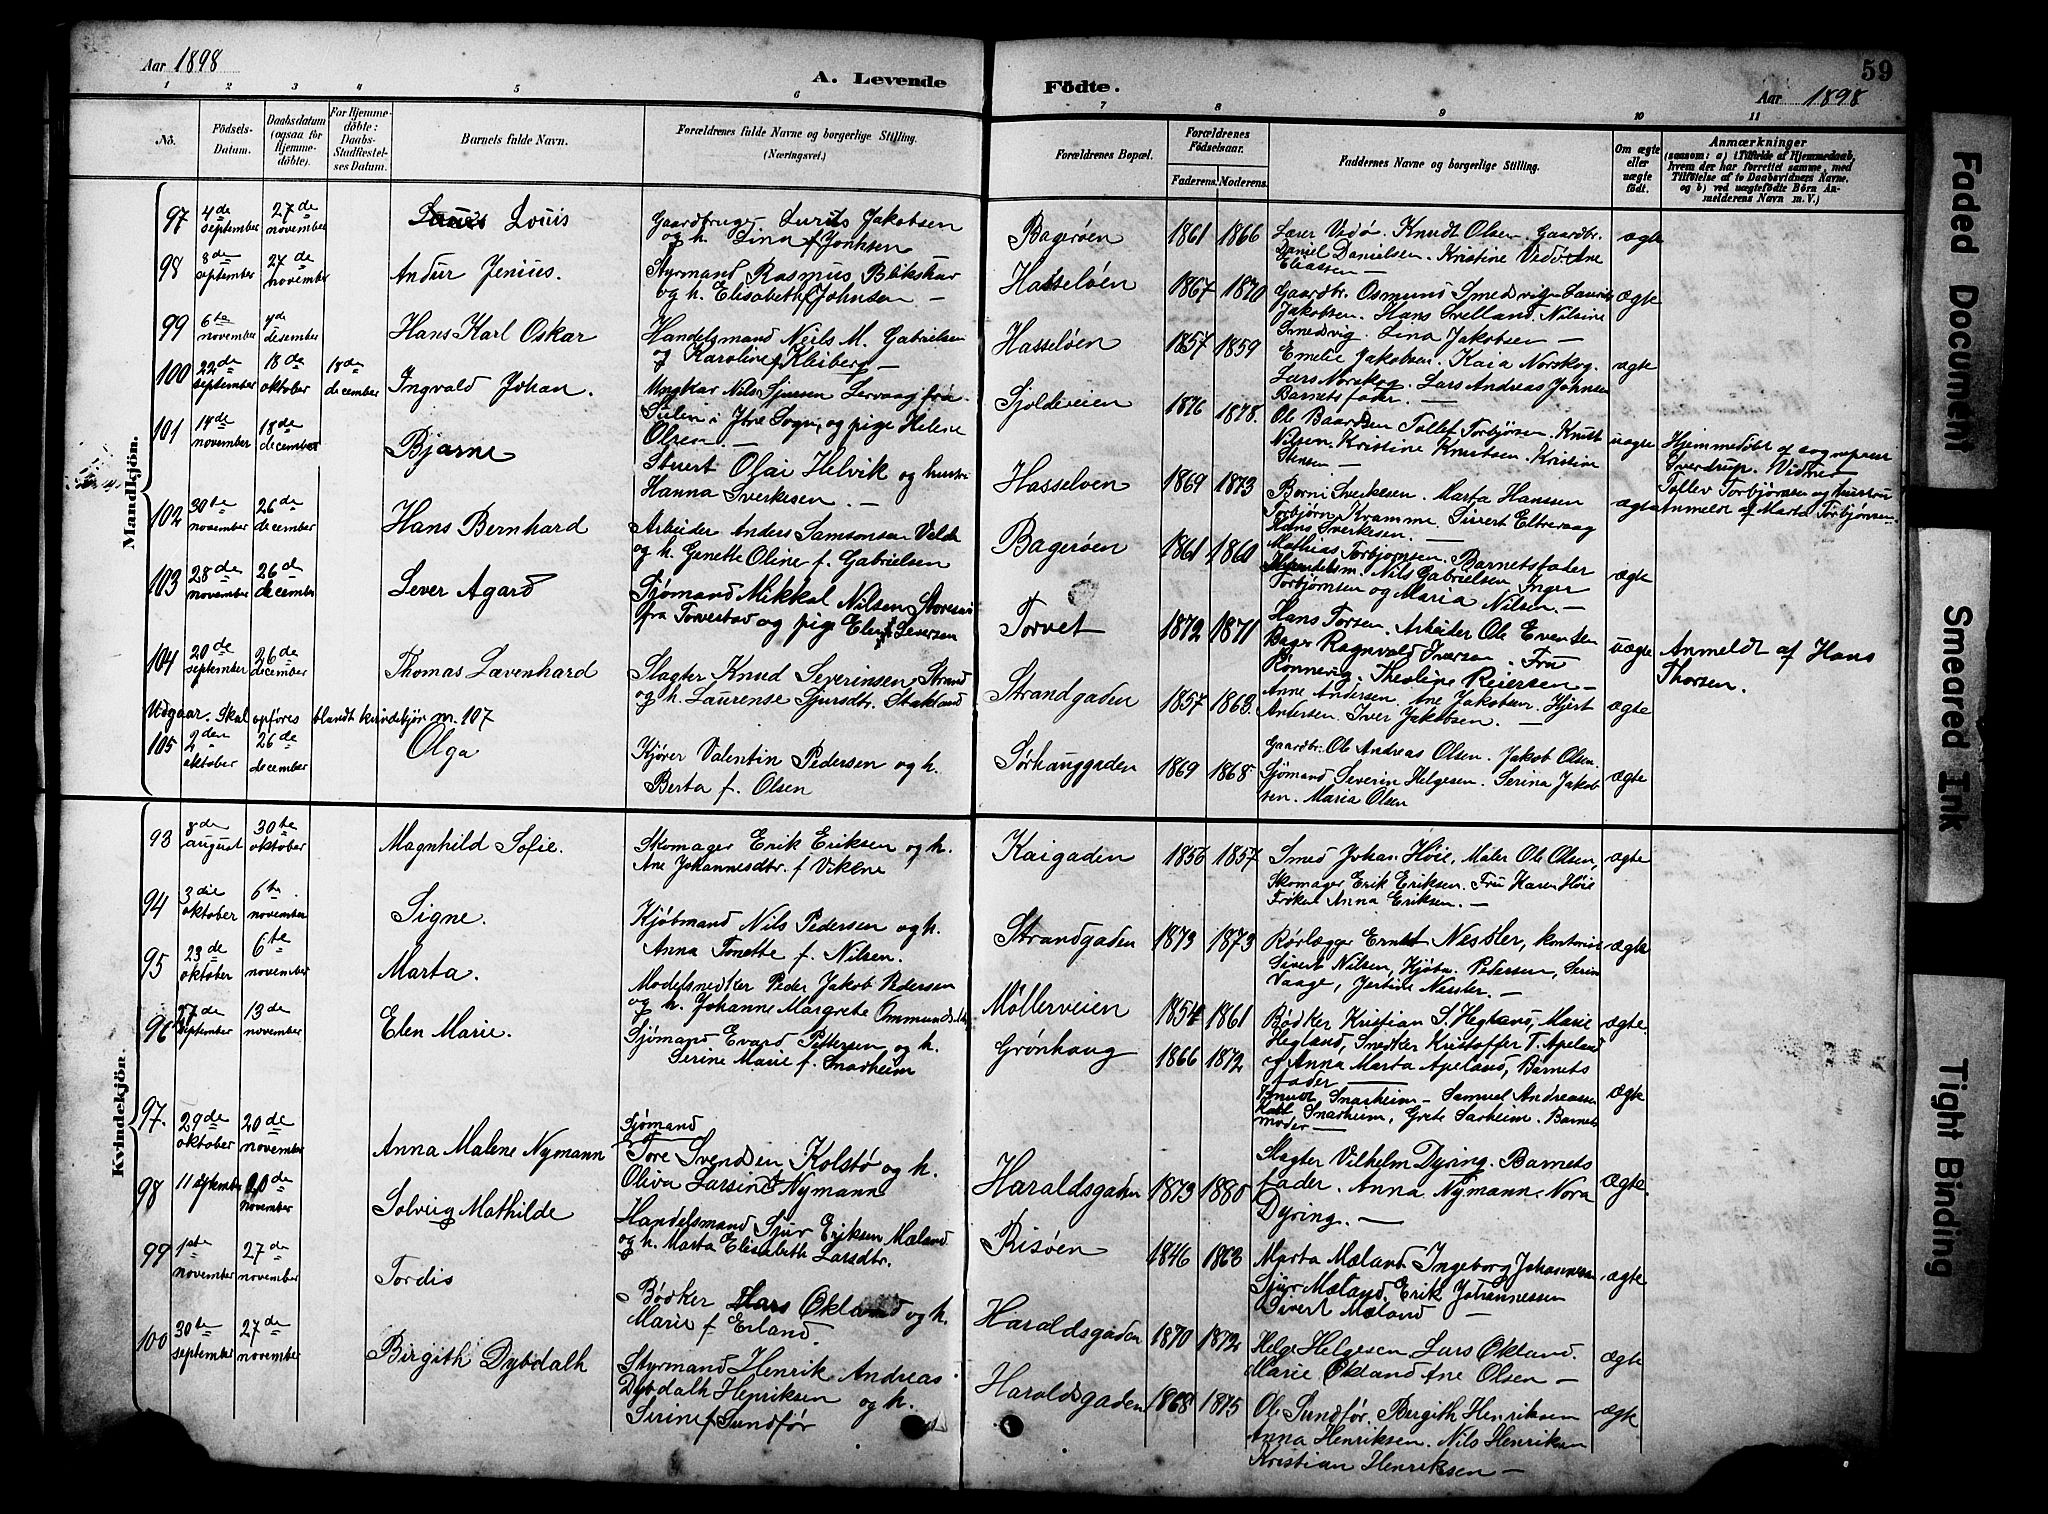 Aar 1898
A. Levende
Födte.
59
Aar 1898
1 2 3 4 5 6 7 8 9 10 11
No.
Födsels-Datum.
Daabsdatum (ogsaa for Hjemmedöbte).
For Hjemmedöbte: Daabs-Stadfæstelses Datum.
Barnets fulde Navn.
Forældrenes fulde Navne og borgerlige Stilling. (Næringsvei.)
Forældrenes Bopæl.
Forældrenes Födselsaar.
Faderens. Moderens.
Faddernes Navne og borgerlige Stilling.
Om ægte eller uægte födt.
Anmærkninger
(saasom: a) i Tilfælde af Hjemmedaab, hvem der har forrettet samme, med Tilföielse af to Daabsvidners Navne. og b) ved uægtefödte Börn Anmelderens Navn m. V.)
Mandkjön.
97 4de september 27de november Louis
Gaardbruger Jakobsen
og h. Lina f Johnsen
Bagerøen 1861 1866
Lærer Vedø. Knudt Olsen. Gaardbr.
Daniel Danielsen. Kristine Vedø. Ane
Eliassen —
ægte
98 8de september 27de november Andur Jenius.
Styrmand Rasmus Blikshav
og h. Elisabeth f Johnsen —
Hasseløen 1867 1870
Gaardbr. Osmund Smedvig. Laurits
Jakobsen. Hans Svelland. Nilsine
Smedvig. Lina Jakobsen —
ægte
99 6te november 4de desember Hans Karl Oskar
Handelsmand Neils M. Gabrielsen
og Karoline f Kleiberg —
Hasseløen 1857 1859
Emelie Jakobsen. Kaia Norskog.
Lars Norskog. Lars Andreas Johnsen
Barnets fader. —
ægte
100 22de september 18de oktober 18de december Ingvald Johan.
Ungkar Nils Sjursen Lervaag fra
Sulen i Ytre Sogn, og pige Helene
Olsen. —
Sjoldeveien 1876 1878.
Ole Baardsen Tollef Torbjørsen. Knut
Nilsen. Kristine Knutsen. Kristine
Stensen —
uægte
Hjemmedøbt af sogneprest
Sverdrup. Vidner
Tollev Torbjørnsen og hustru
Anmeldt af Marta Torbjørnsen.
101 14de november 18de december Bjarne
Stuert Olai Helvik og hustru
Hanna Sverkesen. —
Hasseløen 1869 1873
Børni Sverkesen. Marta Hansen
Torbjørn Kramme. Sivert Eltrevaag
Hans Sverkesen. —
ægte
102 30te november 26de december Hans Bernhard
Arbeider Anders Samsonsen Velde
og h. Genette Oline f. Gabrielsen
Bagerøen 1861 1860
Mathias Torbjørnsen. Barnetsfader
Handelsm. Nils Gabrielsen Inger
Torbjørnsen og Maria Nilsen. —
ægte
103 28de november 26de december Sever Agard
Sjømand Mikkal Nilsen
fra Torvestad og pige Elen Seversen
Torvet 1872 1871
Hans Torsen. Arbeider Ole Evensen
Bager Ragnvald Iversen. Fru
Rønnevig. Theoline Reiersen —
uægte
Anmeldt af Hans
Thorsen.
104 20de september 26de december Thomas Lævenhard
Slagter Knud Severinsen Strand
og h. Laurense Sjursdt. Stakland
Strandgaden 1857 1863.
Anne Andersen. Ane Jakobsen. Hjert
Andersen. Iver Jakobsen. —
ægte
Udgaar. Skal opføres blandt kvindekjøn m. 107
105 2den oktober 26de december Olga
Kjører Valentin Pedersen og h.
Berta f. Olsen
Sørhauggaden 1869 1868
Gaardbr. Ole Andreas Olsen. Jakob Olsen.
Sjømand Severin Helgesen. Serina Jakob
sen. Maria Olsen
ægte
Kvindekjön.
93 8de august 30te oktober Magnhild Sofie.
Skomager Erik Eriksen og h.
Ane Johannesdtr. f Vikene
Kaigaden 1856 1857
Smed Johan Høie, Maler Ole Olsen,
Skomager Erik Eriksen. Fru Karen Høie
Frøken Anna Eriksen. —
ægte
94 3die oktober 6te november Signe.
Kjøbmand Nils Pedersen og h.
Anna Tonette f. Nilsen.
Strandgaden 1873 1873
Rørlægger Ernst Nessler,
Sivert Nilsen, Kjøbm. Pedersen, Serine
Vaage, Jertine Nessler. —
ægte
95 23de oktober 6te november Marta.
Modelsnedker Peder Jakob Pedersen
og h. Johanne Margrete
Møllerveien 1854 1861
Bødker Kristian S. Hegland, Marie
Hegland, Snedker Kristoffer T. Apeland
og Anna Marta Apeland, Barnets
fader —
ægte
96 27de september 13de november Elen Marie.
Sjømand Evard Pettersen og h.
Serine Marie f. Snarheim
Grønhaug 1866 1872
Snarheim — Samuel Andreassen
Snarheim, Grete Sarheim. Barnets
moder —
ægte
97. 29de oktober 20de november Anna Malene Nymann
Sjømand
Tore Svendsen Kolstø og h.
Oliva Larsine Nymann
Haraldsgaden 1873 1880
Slagter Vilhelm Dyring. Barnets
fader. Anna Nymann. Nora
Dyring. —
ægte.
98 11 september 20de november Solveig Mathilde
Handelsmand Sjur Eriksen Mæland
og h. Marta Elisabeth Larsdtr.
Risøen 1846 1863
Marta Mæland. Ingeborg Johannessen
Sjur Mæland. Erik Johannessen
Sivert Mæland —
ægte
99 1ste november 27de november Tordis
Bødker Lars Økland og h.
Marie f Erland.
Haraldsgaden 1870 1872
Helge Helgesen. Lars Økland.
Marie Økland Ane Olsen —
ægte
100 30te september 27de november Birgith Dybdalh
Styrmand Henrik Andreas
Dybdalh Henriksen og h.
Serine f Sundfør
Haraldsgaden 1868 1875
Ole Sundfør. Bergith Henriksen
Anna Henriksen. Nils Henriksen
Kristian Henriksen —
ægte
Faded Document
Smeared Ink
Tight Binding